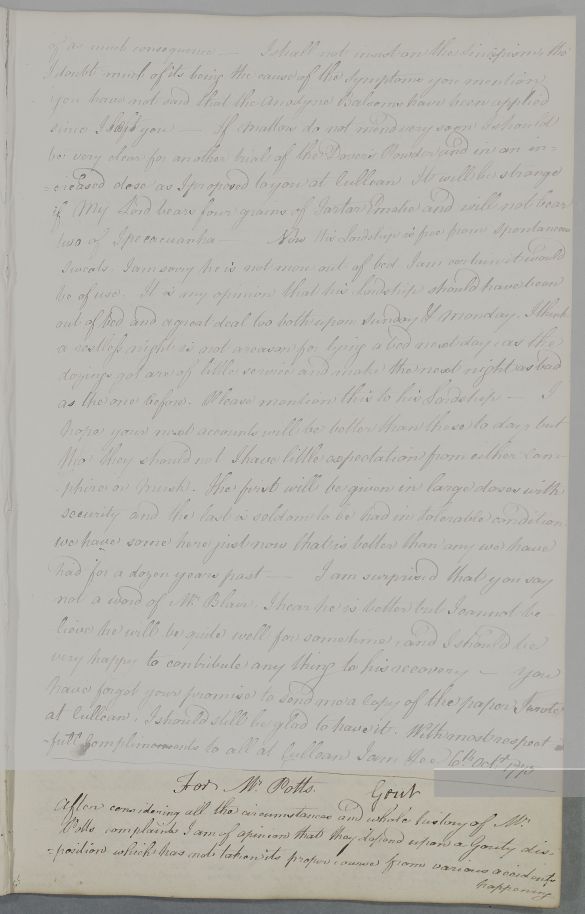 of as much consequence — I shall not insist on the Sinapisms, tho
I doubt much of its being the cause of the Symptoms you mention
you have not said that the Anodyne Balsoms have been applied
since I left you — If matters do not mend very soon I should
be very clear for another trial of the Dover's Powder and in an in=
=creased dose as I proposed to you at Cullean. It will be strange
if My Lord bears four grains of Tartar Emetic and will not bear
use of Ipecacuanha — Now his Lordship is free from spontaneous
Sweats. I am sorry he is not more out of bed. I am certain it would
be of use. It is my opinion that his Lordship should have been
out of bed and a great deal too both upon Sunday & Monday. I think
a restless night is not a reason for lying a bed next day, as the
dozings got are of little service and make the next night as bad
as the one before. Please mention this to his Lordship — I
hope your next accounts will be better than those to day, but
tho' they should not I have little expectation from either Cam=
phire or Musk. The first will be given in large doses with
security and the last is seldom to be had in tolerable condition
we have some here just now that is better than any we have
had for a dozen years past — I am surprised that you say
not a word of Mr. Blair, I hear he is better but I cannot be=
lieve he will be quite well for some time, and I should be
very happy to contribute any thing to his recovery — you
have forgot your promise to send me a copy of the paper I wrote
at Cullean. I should still be glad to have it. With most respect=
=full Compliments to all at Cullean I am &ca 6th Octr. 1775
For Mr. Potts. Gout
After considering all the circumstances and whole history of Mr.
Potts complaints I am of opinion that they depend upon a Gouty dis=
=position which has not taken its proper course from various accidents
happening